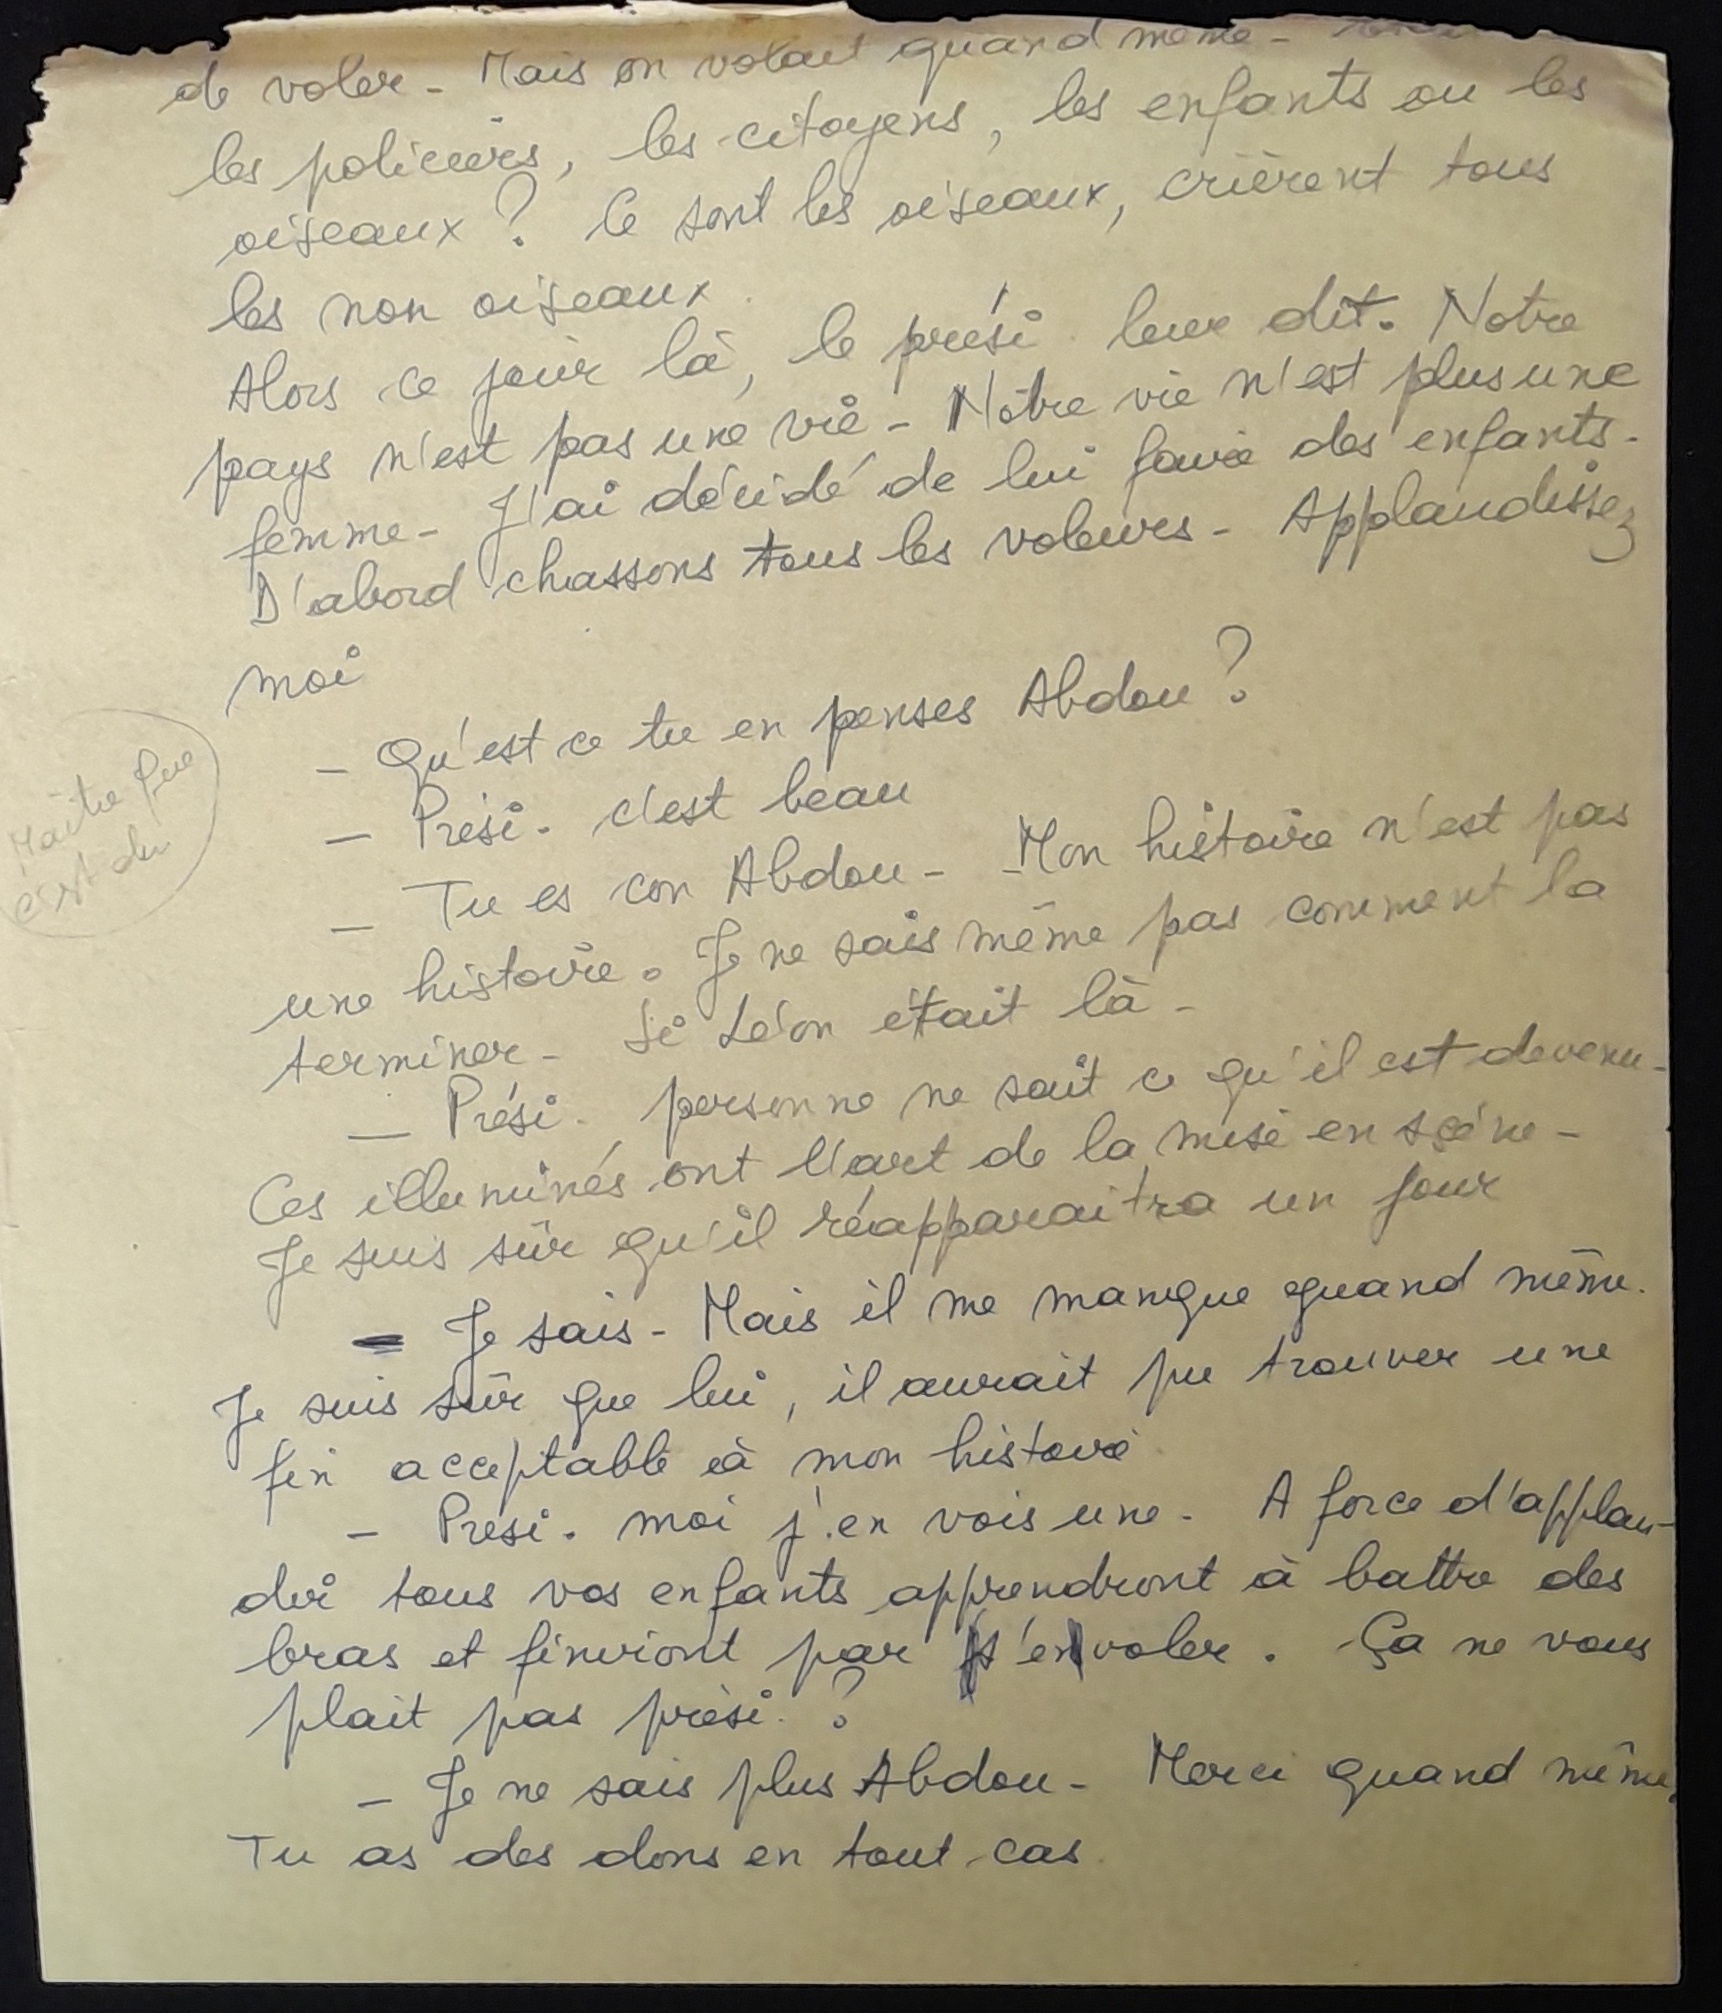 de voler - Mais on volait quand même -
les policiers, les citoyens, les enfants ou les
oiseaux ? Ce sont les oiseaux, crièrent tous
les non oiseaux.
Alors ce jour là, le prési. leur dit. Notre
pays n'est pas une vie - Notre vie n'est plus une
femme - J'ai décidé de lui faire des enfants -
D'abord chassons tous les voleurs - Applaudissez
moi
- Qu'est ce tu en penses Abdou ?
- Prési. c'est beau
- Tu es con Abdou - Mon histoire n'est pas
une histoire. Je ne sais même pas comment la
terminer - Si Léon était là -
- Prési. personne ne sait ce qu'il est devenu -
Ces illuminés ont l'art de la mise en scène -
Je suis sûr qu'il réapparaitra un jour
- Je sais - Mais il me manque quand même.
Je suis sûr que lui, il aurait pu trouver une
fin acceptable à mon histoire
- Prési. moi j'en vois une - A force d'applau-
dir tous vos enfants apprendront à battre des
bras et finiront par s'envoler. Ça ne vous
plait pas prési. ?
- Je ne sais plus Abdou - Merci quand même.
Tu as des dons en tout cas.
Maître que
c'est du